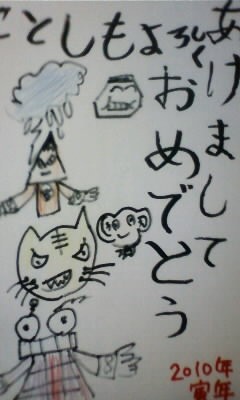 あけまして
おめでとう
ことしもよろしく
2010年
寅年